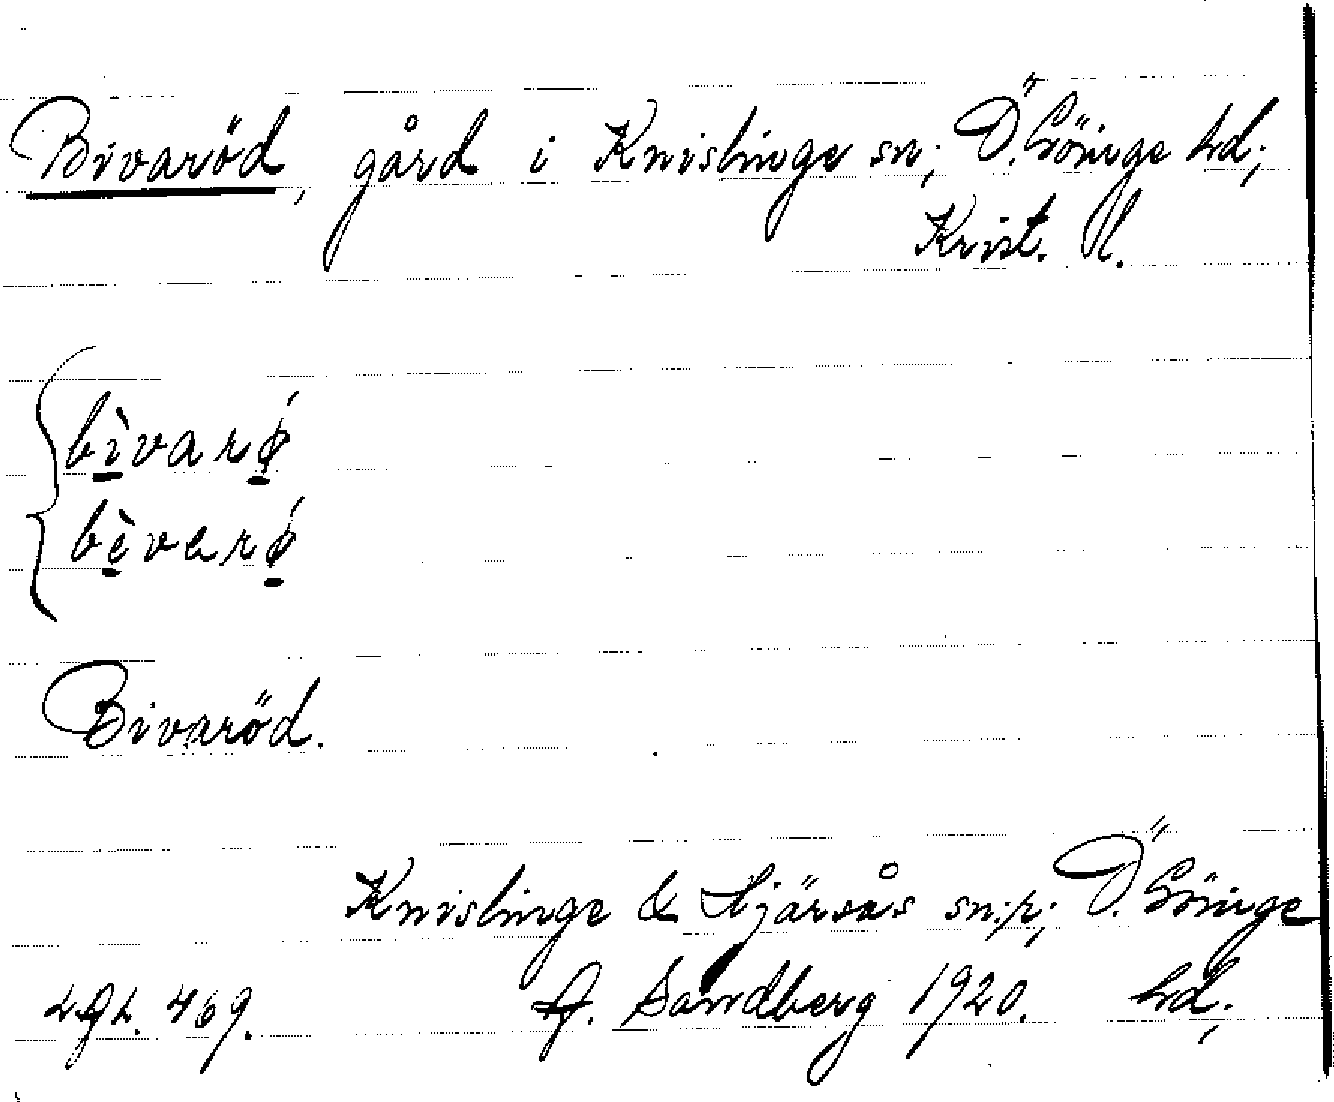 Bivaröd, gård i Knislinge sn; Ö. Göinge hd;
Krist. l.
bìvarǿ
bèvarǿ
Bivaröd.
Knislinge & Hjärsås sn:r; Ö. Göinge
hd;
469. Sandberg 1920.